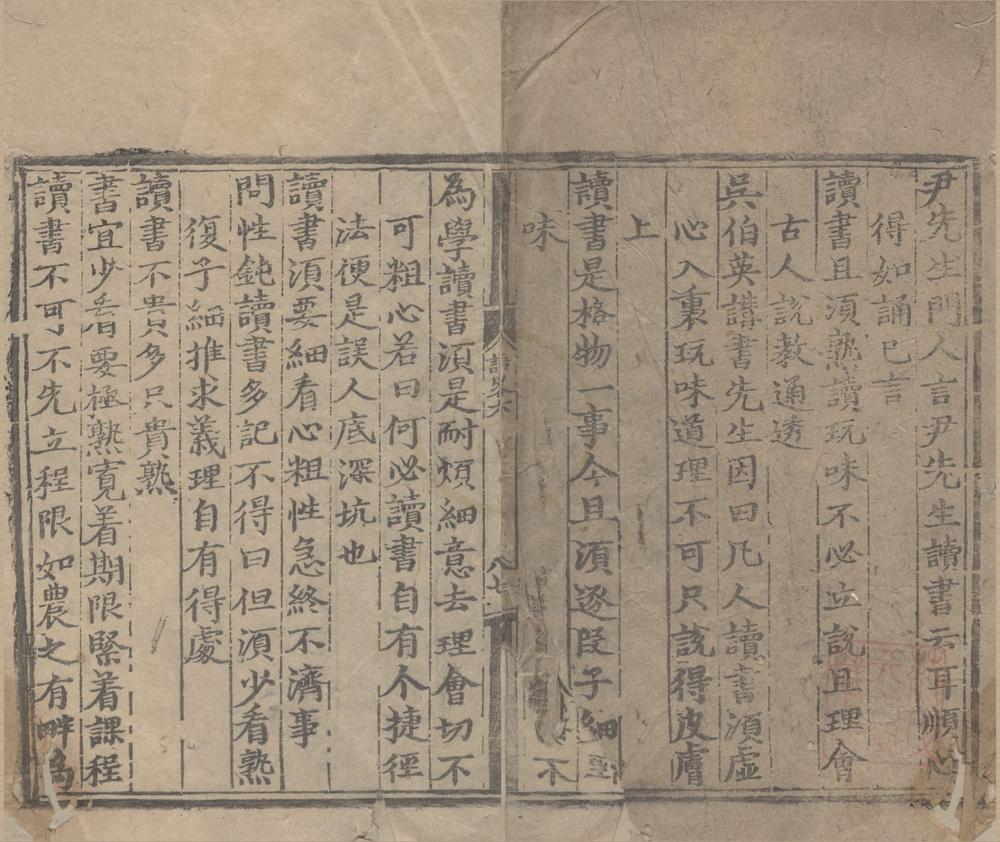 尹先生門人言尹先生讀書云耳順心
得如誦已言
讀書且須熟讀玩味不必立說且理會
古人說教通透
吳伯英講書先生因曰凡人讀書須虛
心入裏玩味道理不可只說得皮膚
上
讀書是格物一事今且須逐段子細
味 不
語畧六
八七
為學讀書須是耐煩細意去理會切不
可粗心若曰何必讀書自有个捷徑
法便是誤人底深坑也
讀書須要細看心粗性急終不濟事
問性鈍讀書多記不得曰但須少看熟
復子細推求義理自有得處
讀書不貴多只貴熟
書宜少看要極熟寬着期限緊着課程
讀書不可不先立程限如農之有畔為